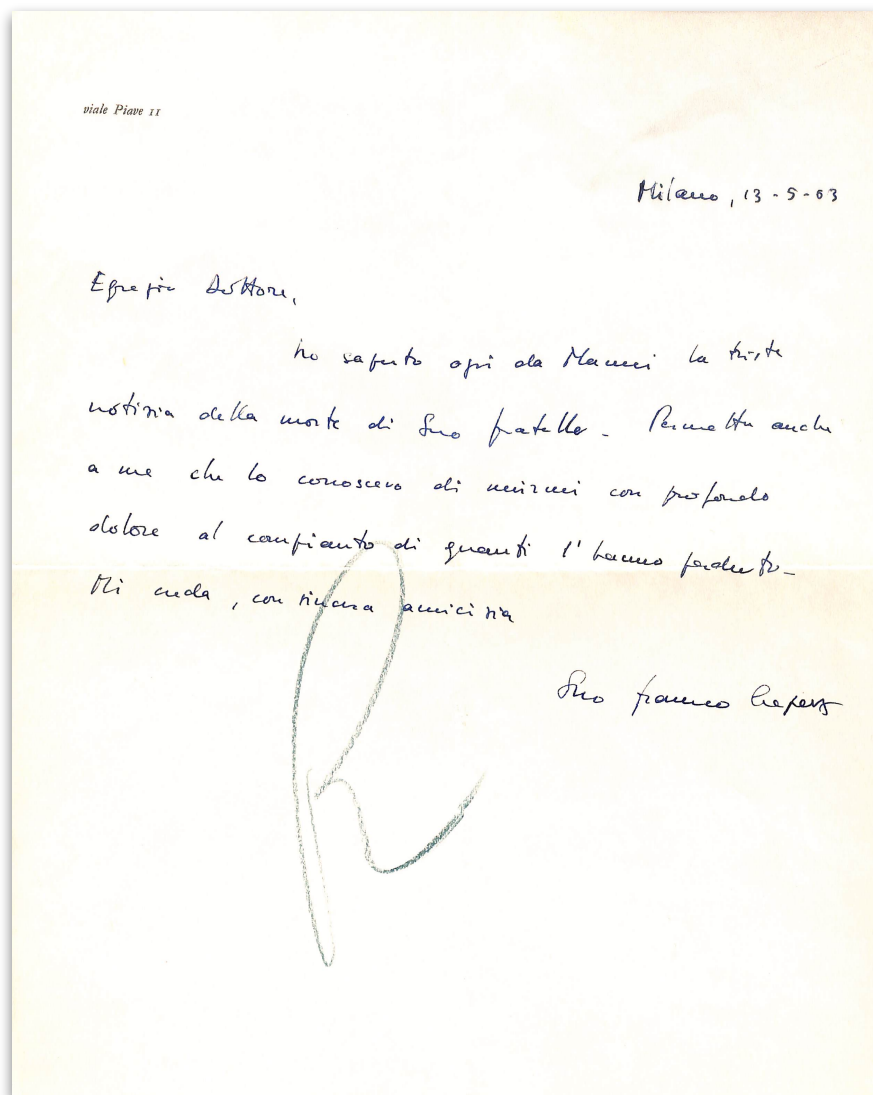 viale Piave 11
Milano, 13-5-63
Egregio Dottore,
ho saputo oggi da Manni la triste
notizia della morte di Suo fratello. Permetta anche
a me che lo conoscevo di unirmi con profondo
dolore al compianto di quanti l'hanno perduto.
Mi creda, con sincera amicizia
Suo Franco
R